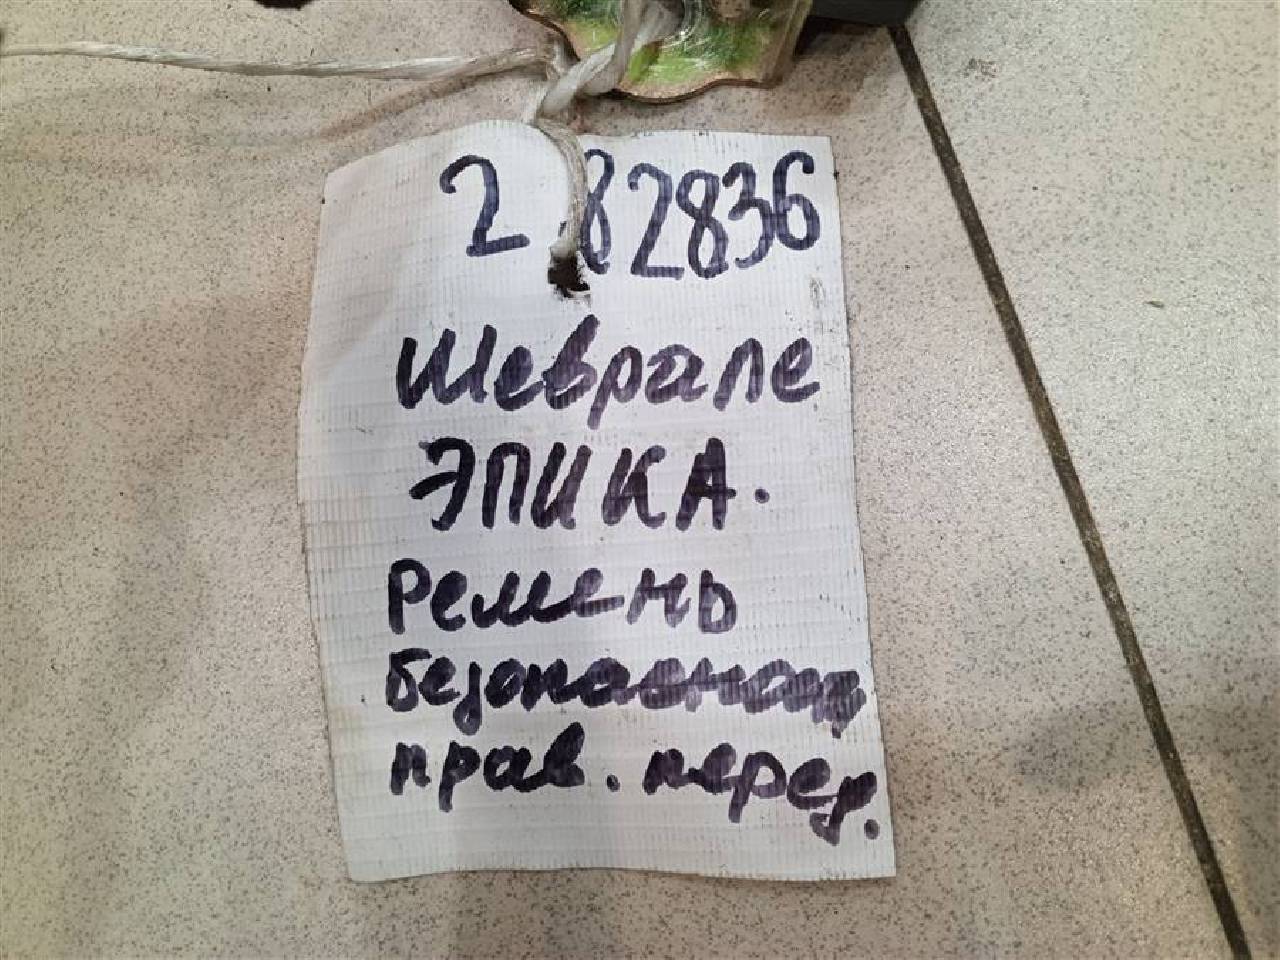 2 82836
Шевроле
ЭПИКА.
Ремень
безопасност
прав. перед.